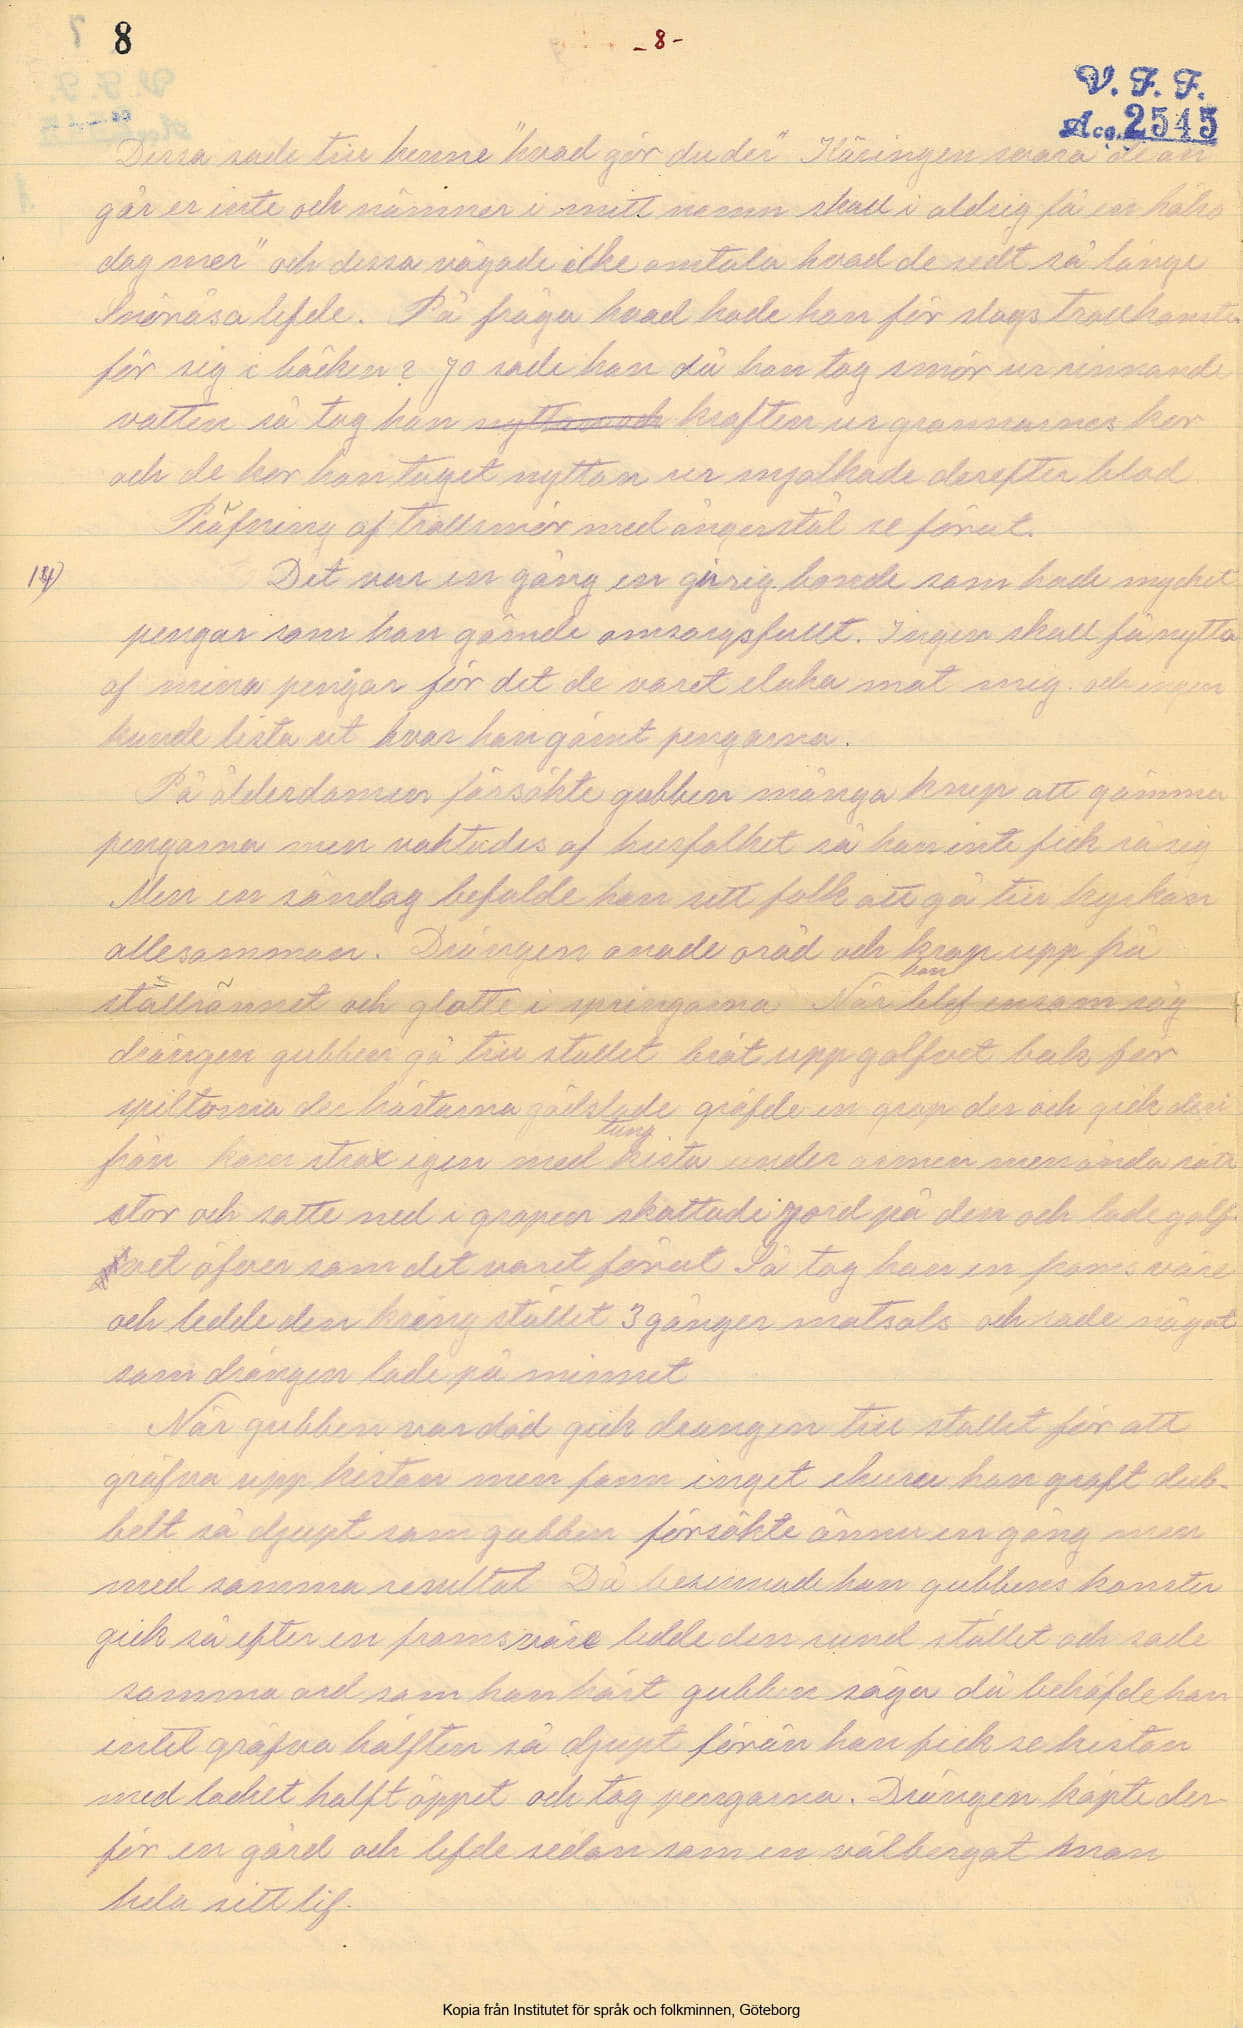 8
-8-
V. F. F.
Acc. 2545
Dessa sade till henne "hvad gör du der" Käringen svara de an
går er inte och nämner i mitt namn skall i aldrig få en hälso
dag mer" och dessa vågade icke omtala hvad de sedt så länge
Snöråsa lefde. På fråga hvad hade hon för slags trollkonster
för sig i bäcken? Jo sade han då hon tog smör ur rinnande
vatten så tog hon nyttan och kraften ur grannarnes kor
och de kor hon taget nyttan ur mjölkade derefter blod
Pröfning af trollsmör med ångerstål se förut.
14)
Det var en gång en girig bonde som hade mycket
pengar som han gömde omsorgsfullt. Ingen skall få nytta
af mina pengar för det de varet elaka mot mig och ingen
kunde lista ut hvar han gömt pengarna.
På ålderdomen försökte gubben många knep att gömma
pengarna men vaktades af husfolket så han inte fick rå sig
Men en söndag befalde han sitt folk att gå till kyrkan
allesamman. Drängen anade oråd och krop upp på
stallrännet och glotte i springorna När han blef ensam såg
drängen gubben gå till stallet bröt upp golfvet bak för
spiltorna der hästarna gödslade gräfde en grop der och gick der
ifrån kom strax igen med tung kista under armen men ända rätt
stor och satte ned i gropen skottade jord på den och lade golf-
vet öfver som det varet förut Så tog han en
och ledde den kring stället 3 gånger motsols och sade något
som drängen lade på minnet
När gubben var död gick drängen till stallet för att
gräfva upp kistan men fann inget ehuru han graft dub-
belt så djupt som gubben försökte ännu en gång men
med samma resultat Då besinnade han gubbens konster
gick så efter en ledde den rund stället och sade
samma ord som han hört gubben säga då behöfde han
intet gräfva hälften så djupt förän han fick se kistan
med locket halft öppet och tog pengarna. Drängen köpte der-
för en gård och lefde sedan som en välbergat man
hela sitt lif.
Kopia från Institutet för språk och folkminnen, Göteborg